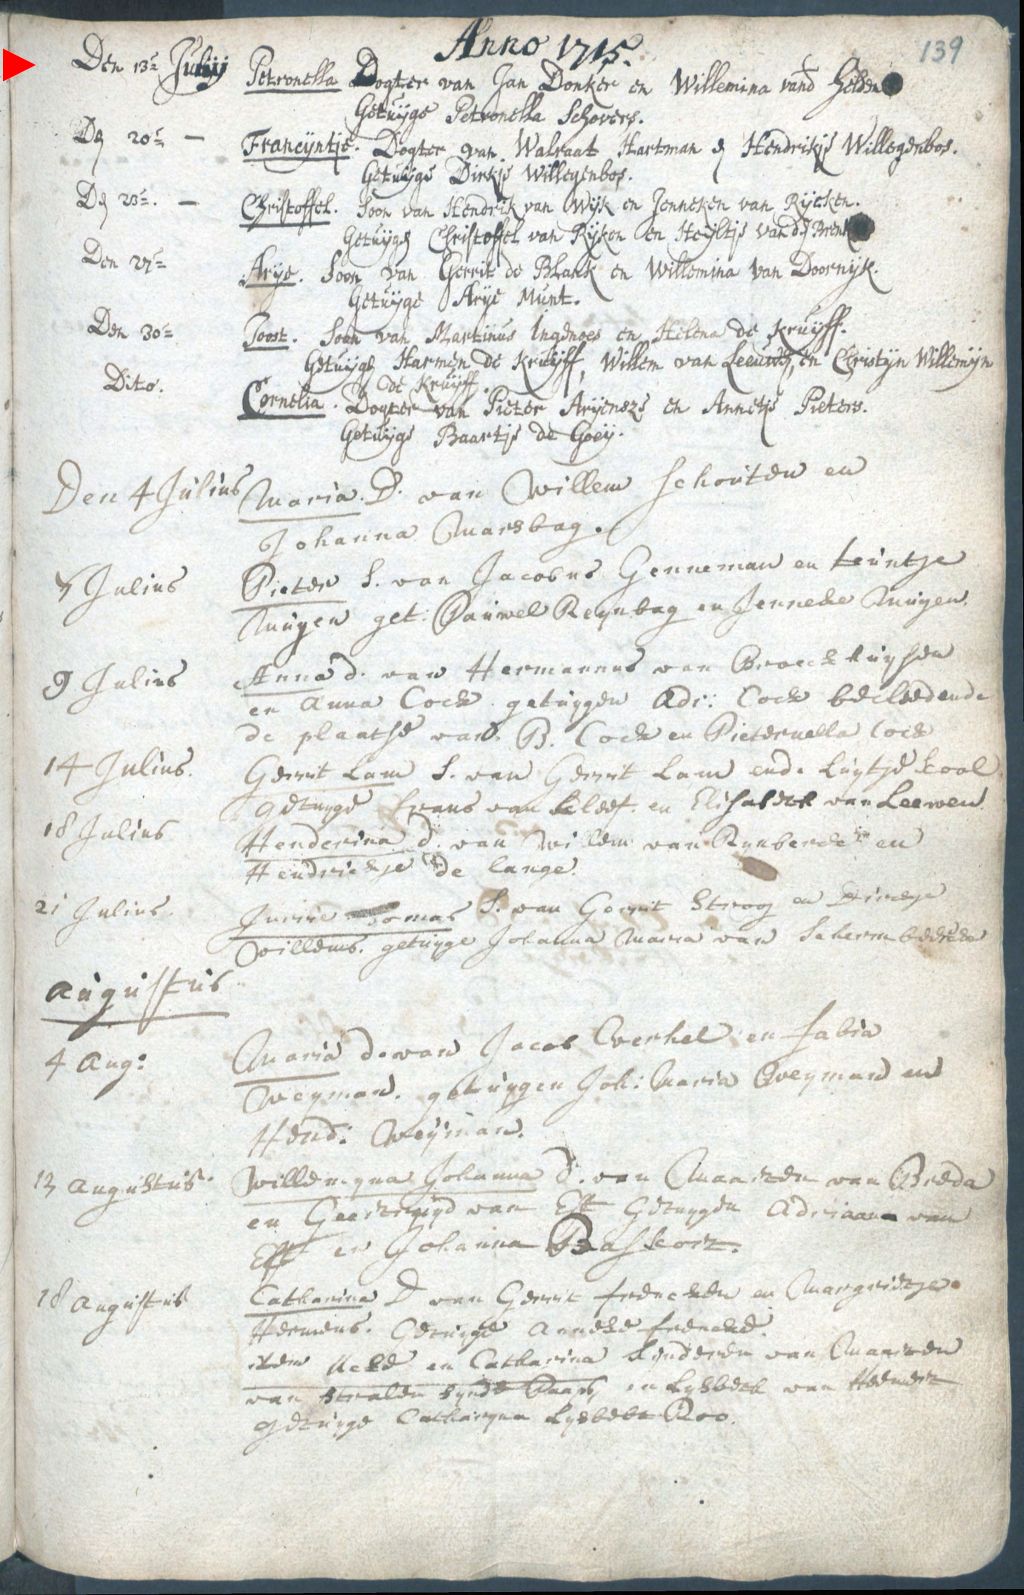 139
Anno 1715.
Den 13e Petronella Dogter van Jan Donker en Willemina vand Helden
Getuijge Petronella Schovers.
Den 20e — Francijntje. Dogter van Walraat Hartman en Hendrikje Willegenbos.
Getuijge Dirkje Willegenbos.
Den 23e. — Christoffel. Soon van Hendrik van Wijk en Jenneken van Rijcken.
Getuijgen Christoffel van Rijken en Heijltje van
Den Arije. Soon van Gerrit de Blank en Willemina van Doornijk.
Getuijge Arije Munt.
Den 30e Joost. Soon van Martinus Ingenoes en Helena de Kruijff.
Getuijge Harmen de Kruijff, Willem van Leeuwen, en Cristijn Willemijn
de Kruijff.
Dito. Cornelia. Dogter van Pieter Arijensze en Annetje Pieters.
Getuijge Baartje de Goeij.
Den 4 Julius Maria. D. van Willem Schouten en
Johanna Marsbag.
Julius Pieter S. van Jacobus Genneman en teuntje
get: Pauwel Reijnbag en Jenneke
9 Julius Anna d. van Hermannus van Broeckhuijsen
en Anna Cock getuygen Adr: Cock becleedende
de plaatse van B. Cock en Pieternella Cock
14 Julius. Gerrit Lam S. van Gerrit Lam ende Luytje kool
getuyge Frans van en Elisabeth van Leewen.
18 Julius Henderina d. van Willem van en
Hendrickje de lange.
21 Julius. S. van Gerrit Stroog en Dirckje
Willems. getuyge Johanna Maria van Schermbeeck
Augustus
4 Aug: Maria d. van Jacob Verhel en fabia
Weyman. getuygen Joh: Maria Weyman en
Hend: Weyman.
augustus. Willemyna Johanna d. van Maarten van Breda
en Geertruyd van Est Getuygen Adriaan van
Est en Johanna Basseort.
18 augustus Catharina D van Gerrit en Margrietje
Hermens. Getuyge Anneke
item en Catharina kinderen van Maarten
van Stralen en Lysbeth van Heemert
getuyge Catharyna Lysbeth Roo.